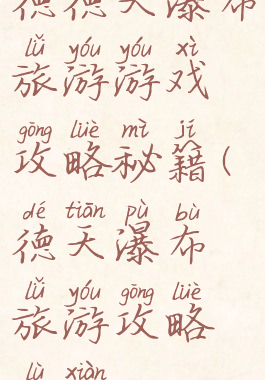 德德天瀑布
lǚ yóu yóu xì
旅游游戏
gōng lüè mì jí
攻略秘籍(
dé tiān pù bù
德天瀑布
lǚ yóu gōng lüè
旅游攻略
lù xiàn